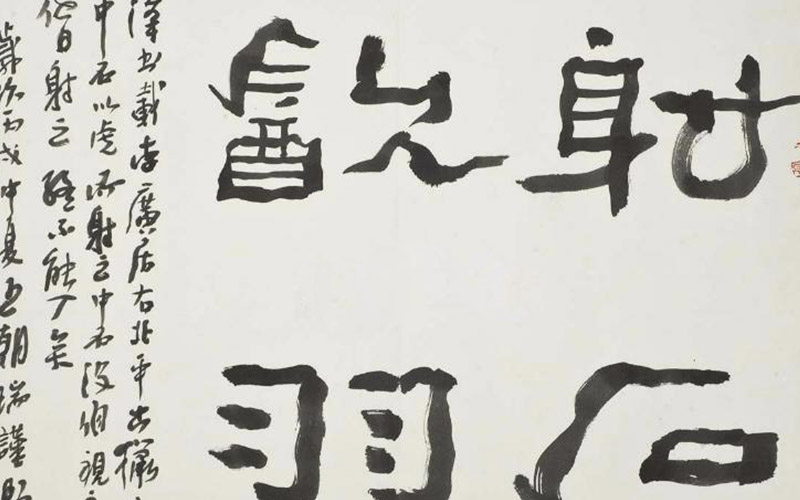 射石
飲羽
漢書載李廣居右北平出獵
中石以虎而射之中石沒視
他日射之終不能入矣
歲次丙戌中夏王朝瑞謹